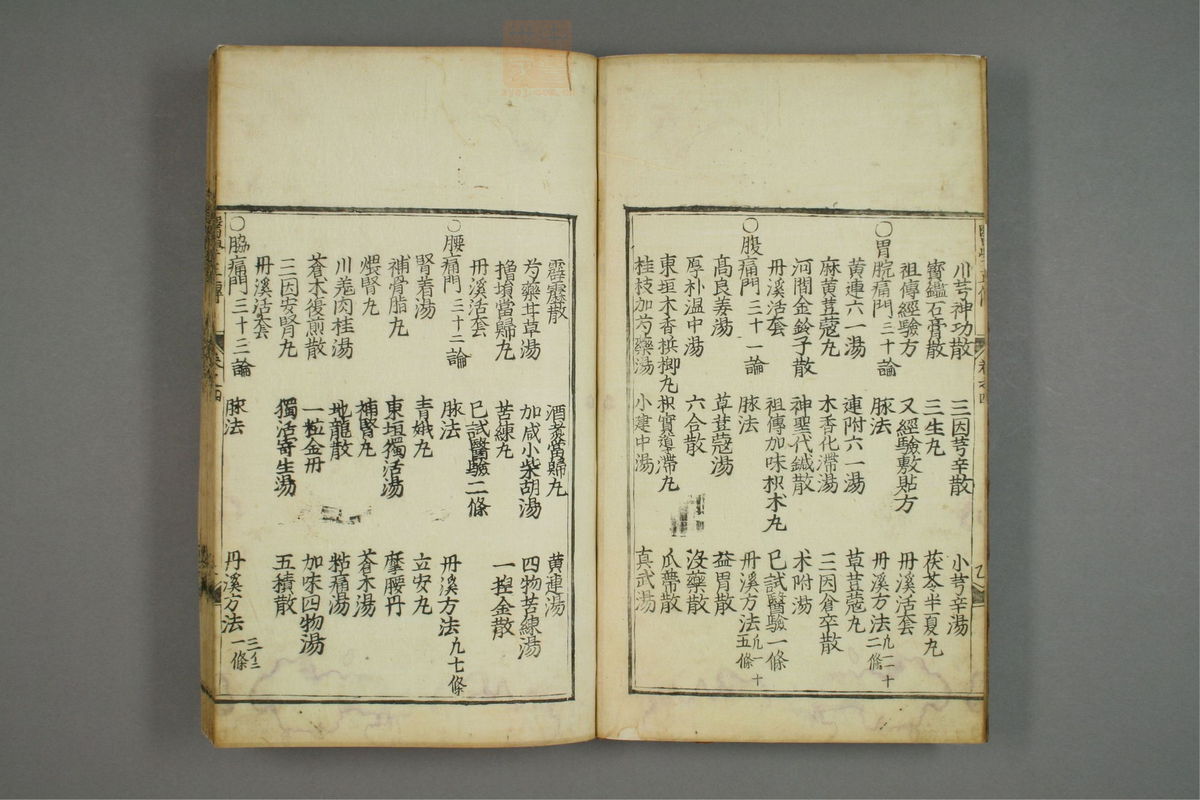 川芎神功散 三因芎辛散 小芎辛湯
寳鑑石膏散 三生丸 茯苓半夏丸
祖傳經驗方 又經驗敷貼方 丹溪活套
○胃脘痛門三十論 脉法 丹溪方法凡一十二條
黄連六一湯 連附六一湯 草荳蔻丸
麻黄荳蔻丸 木香化滯湯 三因倉卒散
河間金鈴子散 神聖代鍼散 术附湯
丹溪活套 祖傳加味枳术丸 已試醫驗一條
○腹痛門三十一論 脉法 丹溪方法凡一十五條
高良姜湯 草荳蔻湯 益胃散
厚朴温中湯 六合散 沒藥散
東垣木香梹榔丸 枳實導滯丸 瓜蔕散
桂枝加芍藥湯 小建中湯 真武湯
霹靂散 酒煮當歸丸 黄連湯
芍藥甘草湯 加减小柴胡湯 四物苦練湯
擣埧當歸丸 苦練丸 一捏金散
丹溪活套 已試醫驗二條
○腰痛門三十二論 脉法 丹溪方法凡七條
腎着湯 青娥丸 立安丸
補骨脂丸 東垣獨活湯 摩腰丹
煨腎丸 補腎丸 蒼术湯
川芎肉桂湯 地龍散 粘痛湯
蒼术復煎散 一粒金丹 加味四物湯
三因安腎丸 獨活寄生湯 五積散
丹溪活套
○脇痛門三十三論 脉法 丹溪方法一條
卷之四